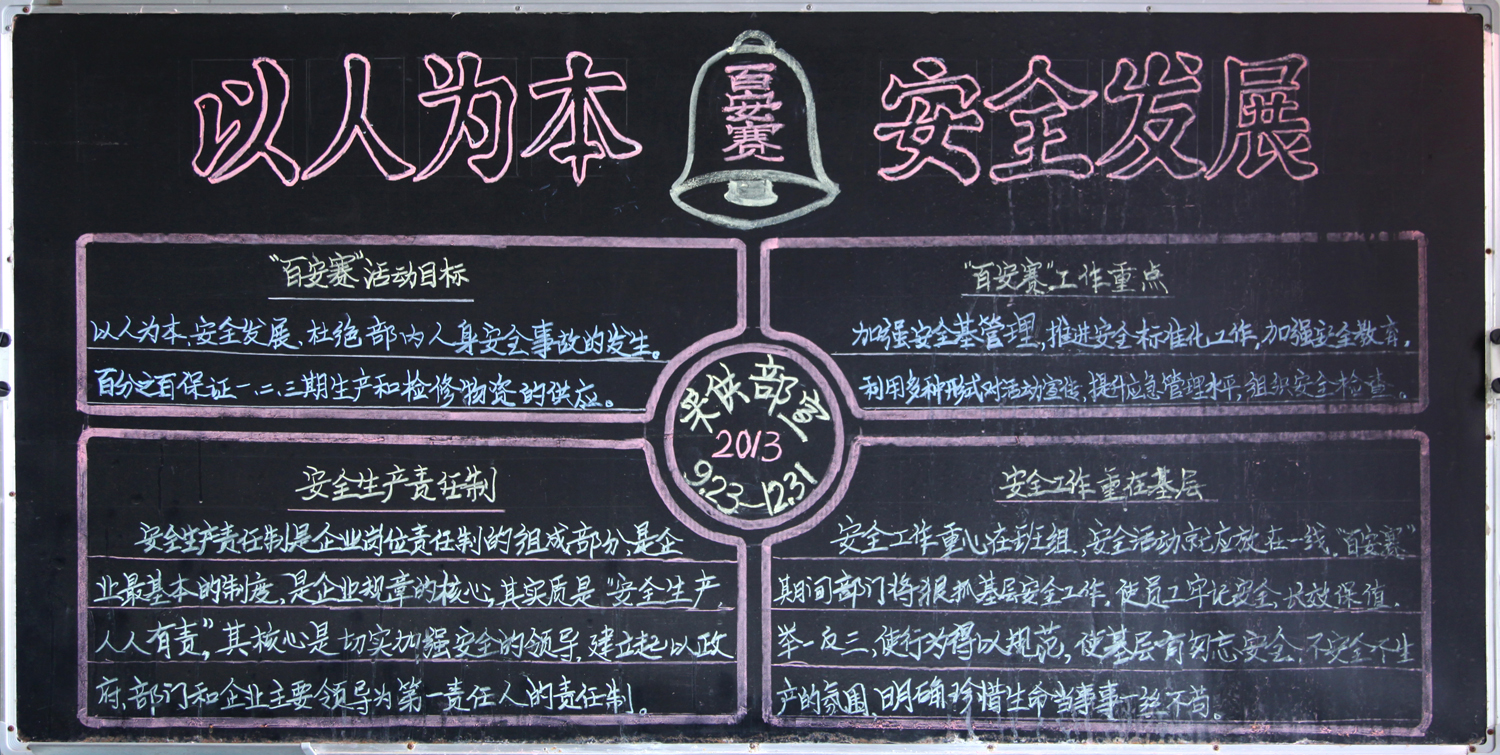 以人为本
百安赛
安全发展
"百安赛"活动目标
以人为本、安全发展、杜绝部内人身安全事故的发生。
百分之百保证一.二.三期生产和检修物资的供应。
"百安赛"工作重点
加强安全基管理,推进安全标准化工作,加强安全教育.
利用多种形式对活动宣传,提升应急管理水平,组织安全检查.
采供部宣
2013
9.23—12.31
安全生产责任制
安全生产责任制是企业岗位责任制的组成部分,是企
业最基本的制度,是企业规章的核心,其实质是"安全生产,
人人有责",其核心是切实加强安全的领导,建立起以政
府、部门和企业主要领导为第一责任人的责任制。
安全工作重在基层
安全工作重心在班组,安全活动就应放在一线,"百安赛"
期间部门将狠抓基层安全工作,使员工牢记安全,长效保值,
举一反三,使行为得以规范,使基层有勿忘安全,不安全不生
产的氛围,明确珍惜生命当事事一丝不苟。